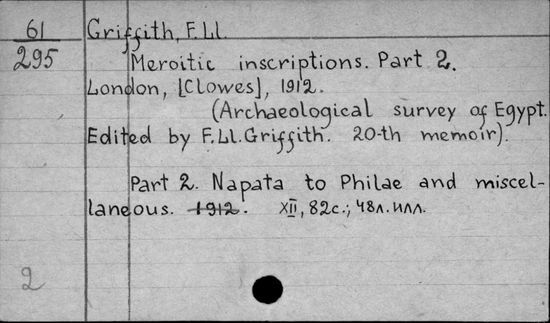 61 Griffith, F.Ll.
295 Meroitic inscriptions. Part 2.
London, [Clowes], 1912.
(Archaeological survey of Egypt.
Edited by F.Ll.Griffith. 20-th memoir).
Part 2. Napata to Philae and miscel-
laneous. 1912. XII, 82с.; 48л.илл.
2